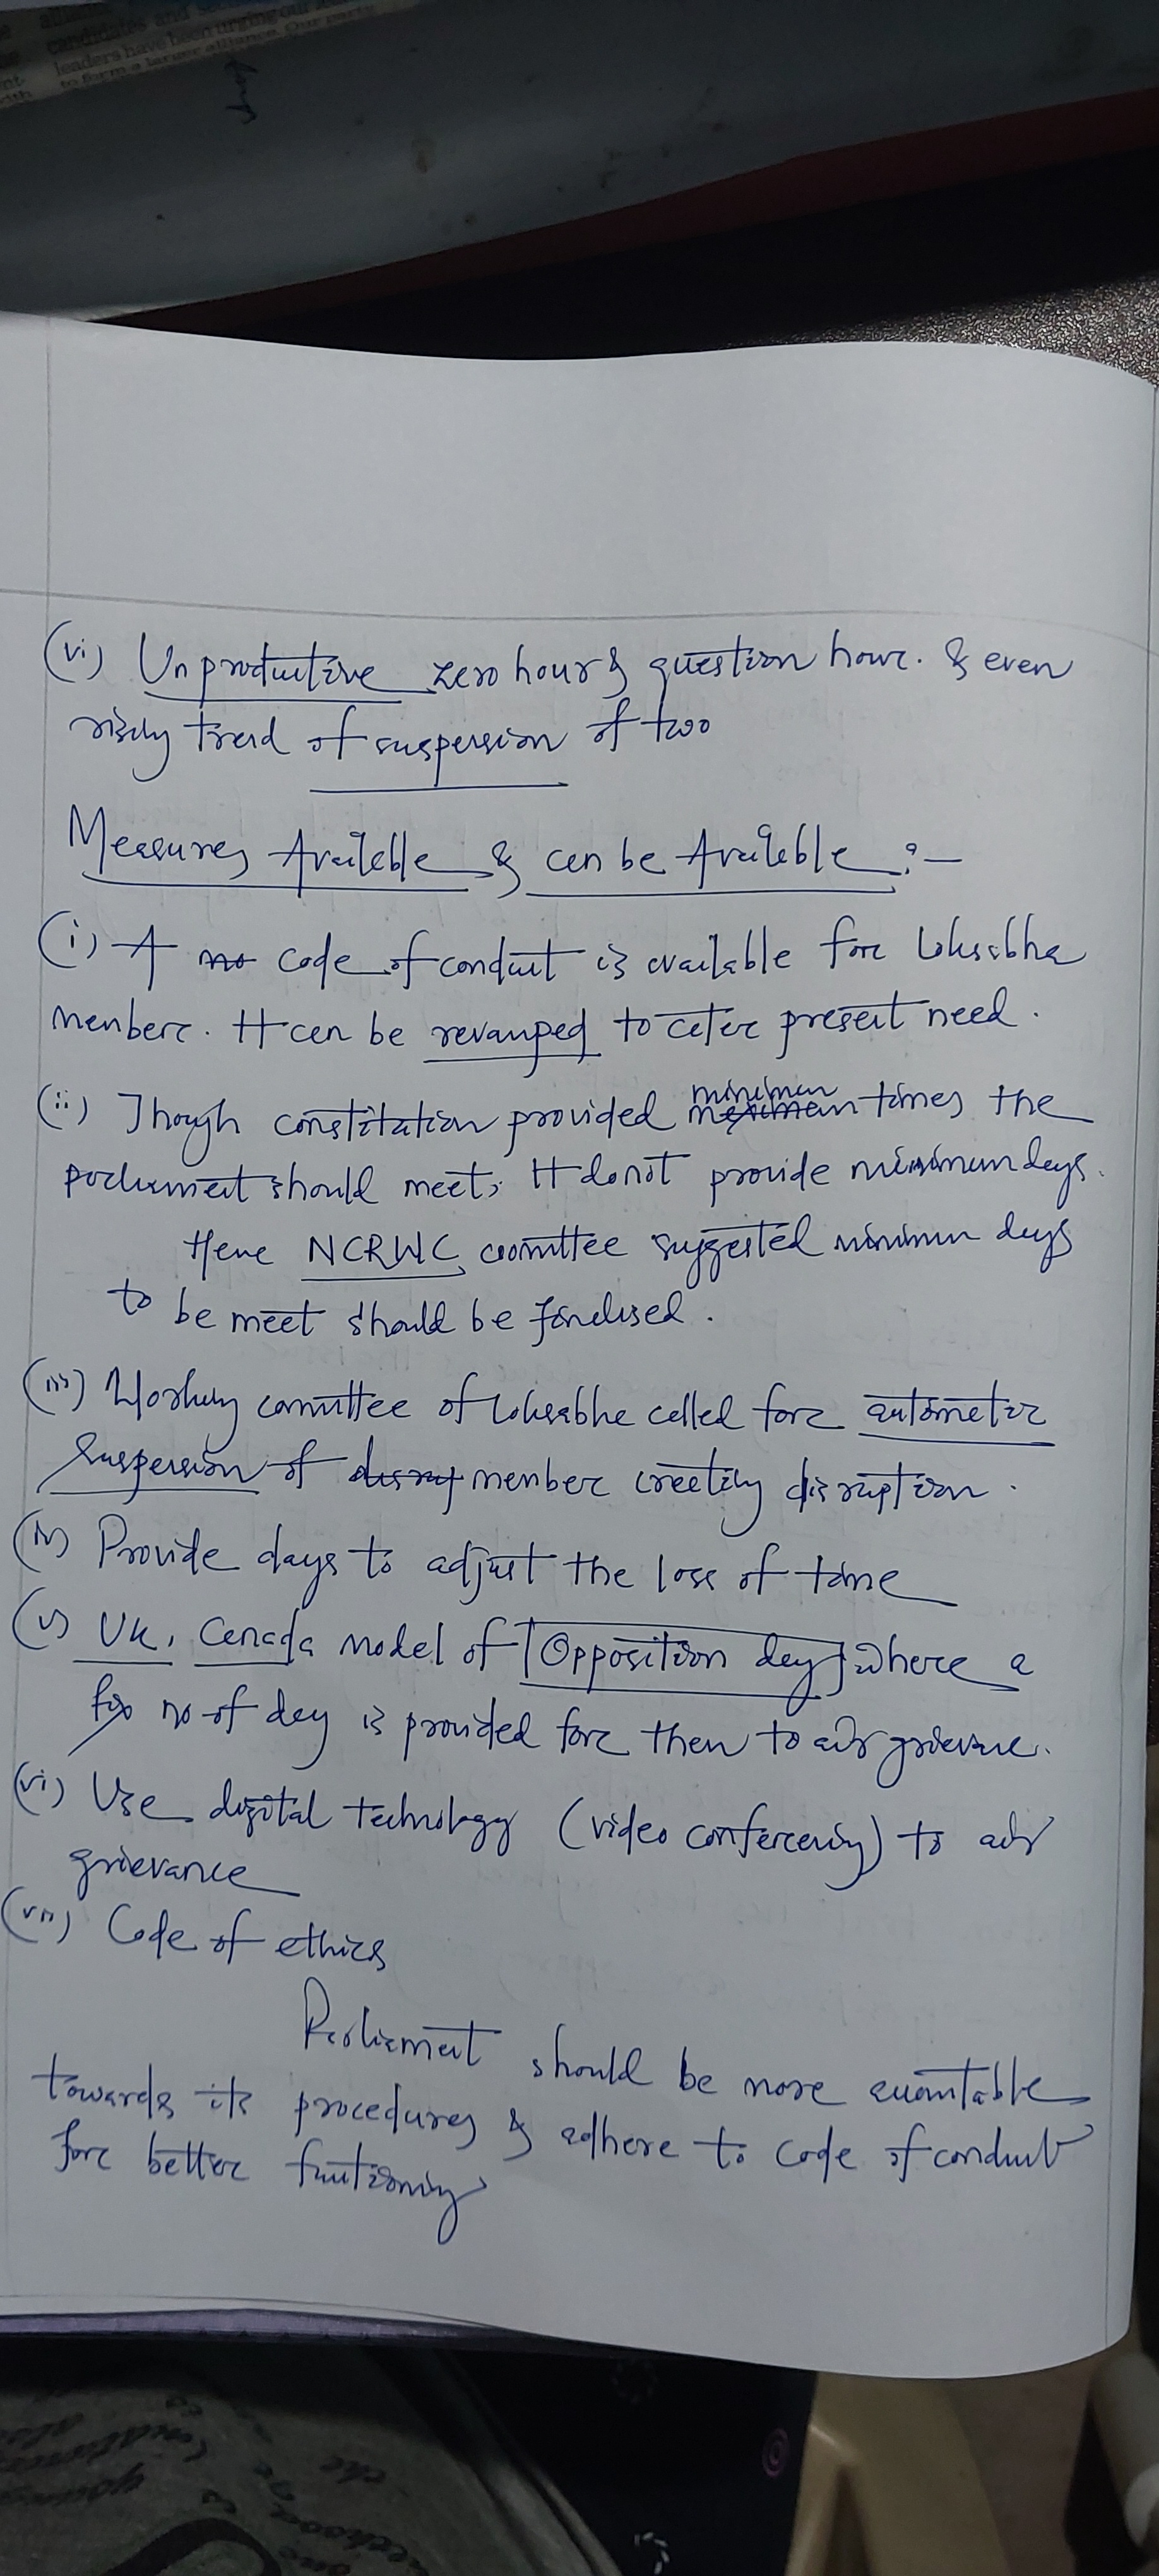 candidates and
leaders have been urging our
to form a larger alliance. Our party
(vi) Unproductive zero hour & question hour. & even
rising trend of suspension of two
Measures Available & can be Available :-
(i) A no code of conduct is available for Loksabha
member. It can be revamped to cater present need.
(ii) Though constitution provided minimum maximum times the
parliament should meet, It donot provide minimum days.
Here NCRWC committee suggested minimum days
to be meet should be finalised.
(iii) Working committee of Loksabha called for automatic
suspension of member creating disruption.
(iv) Provide days to adjust the loss of time
(v) UK, Canada model of Opposition day where a
fix no of day is provided for them to air grievance.
(vi) Use digital technology (video conferencing) to air
grievance
(vii) Code of ethics
Parliament should be more accountable
towards its procedures & adhere to code of conduct
for better functioning